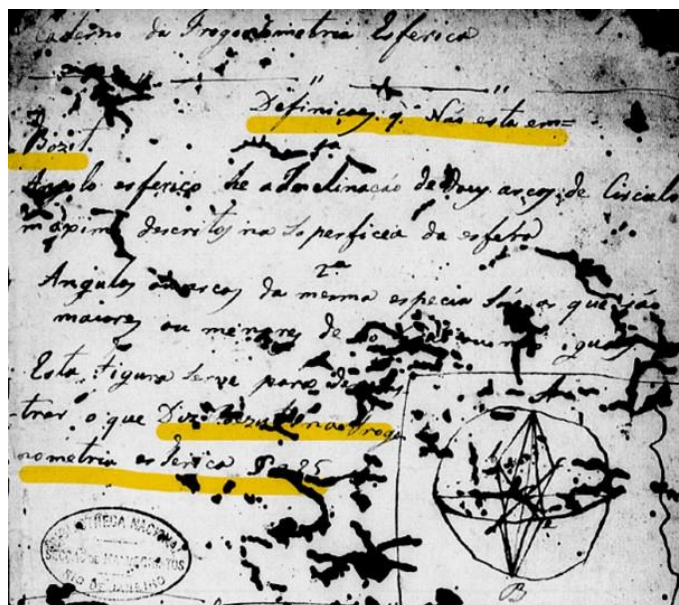 Caderno da Trogonometria Esferica
1
Definiçoẽs q̃ Não está em=
Bozit.
1ª
Angolo esferico he a Inclinação de Dous arcos de Circulo
maximo descritos na Soperficia da esfera
2ª
Angulos ou arcos da mesma especia São os que são
maiores ou menores de
Esta figura serve para demons
trar o que Diz Bozit na Trogo
nometria esferica § 25
BIBLIOTHECA NACIONAL
SECÇÃO DE MANUSCRIPTOS
RIO DE JANEIRO
A
B